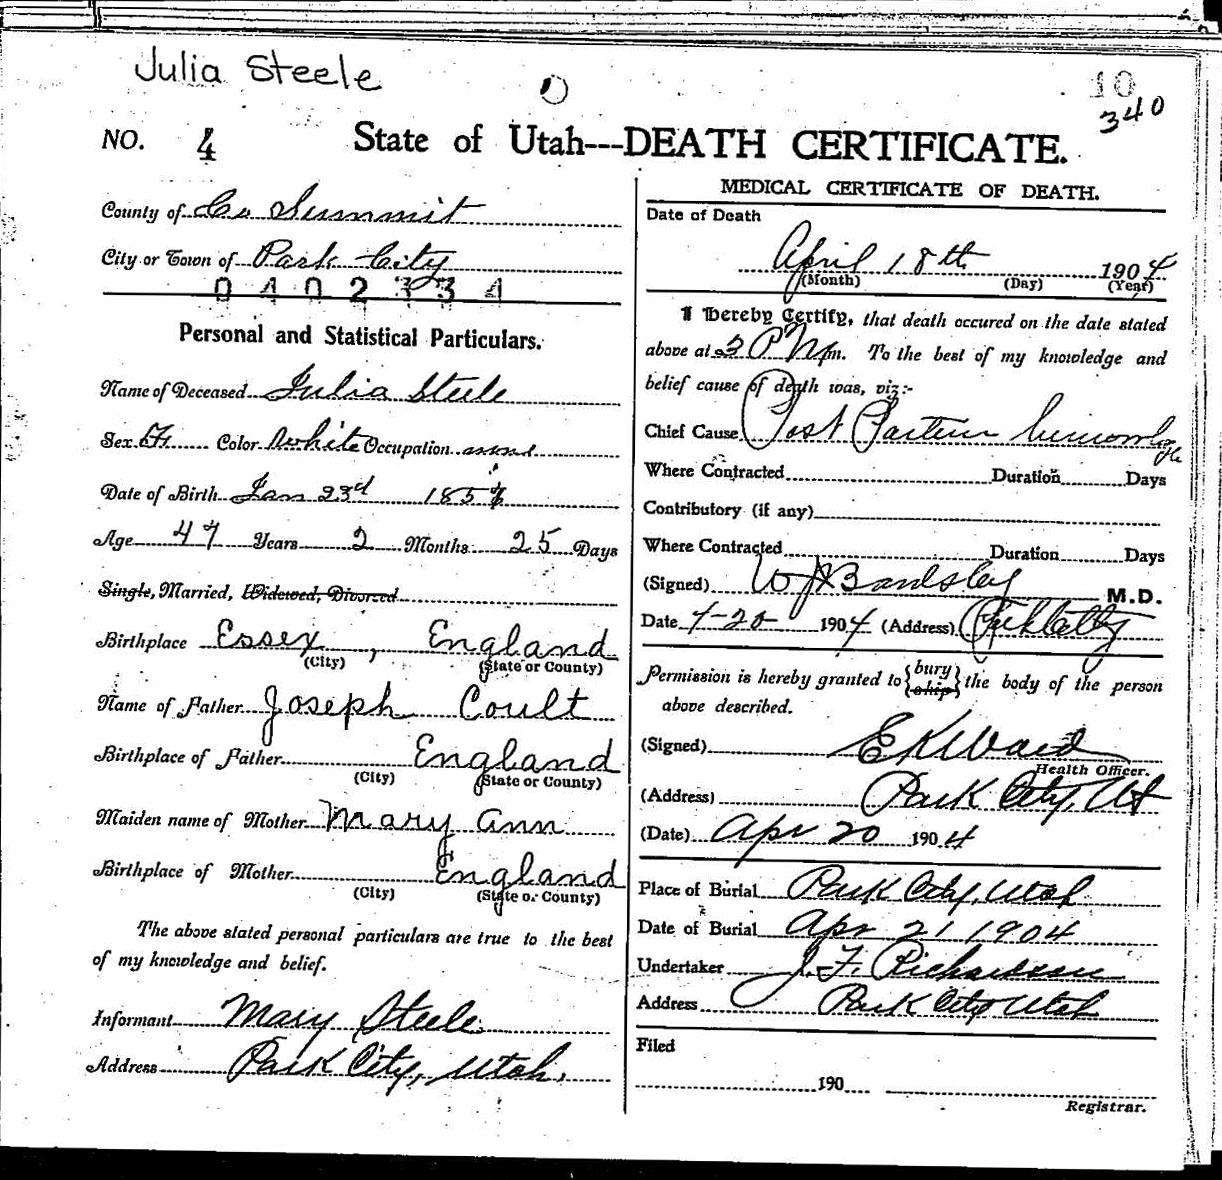 Julia Steele
10
340
NO. 4 State of Utah---DEATH CERTIFICATE.
County of Co Summit
City or Town of Park City
0402334
Personal and Statistical Particulars.
Name of Deceased Julia Steele
Sex F. Color White Occupation none
Date of Birth Jan 23rd 1857
Age 47 Years 2 Months 25 Days
Single, Married, Widowed, Divorced
Birthplace Essex, England
(City) (State or County)
Name of Father Joseph Coult
Birthplace of Father England
(City) (State or County)
Maiden name of Mother Mary Ann
Birthplace of Mother England
(City) (State or County)
The above stated personal particulars are true to the best
of my knowledge and belief.
Informant Mary Steele
Address Park City, Utah.
MEDICAL CERTIFICATE OF DEATH.
Date of Death
April 18th 1904
(Month) (Day) (Year)
I Hereby Certify, that death occured on the date stated
above at 3 P M m. To the best of my knowledge and
belief cause of death was, viz:-
Chief Cause Post Partem hemorrhage
Where Contracted Duration Days
Contributory (if any)
Where Contracted Duration Days
(Signed) W J Bardsley M.D.
Date 4-20 1904 (Address) Park City
Permission is hereby granted to {bury
ship} the body of the person
above described.
(Signed) E K Ward
Health Officer.
(Address) Park City, Ut
(Date) Apr 20 1904
Place of Burial Park City, Utah
Date of Burial Apr 21 1904
Undertaker J. F. Richardson
Address Park City Utah
Filed
190
Registrar.